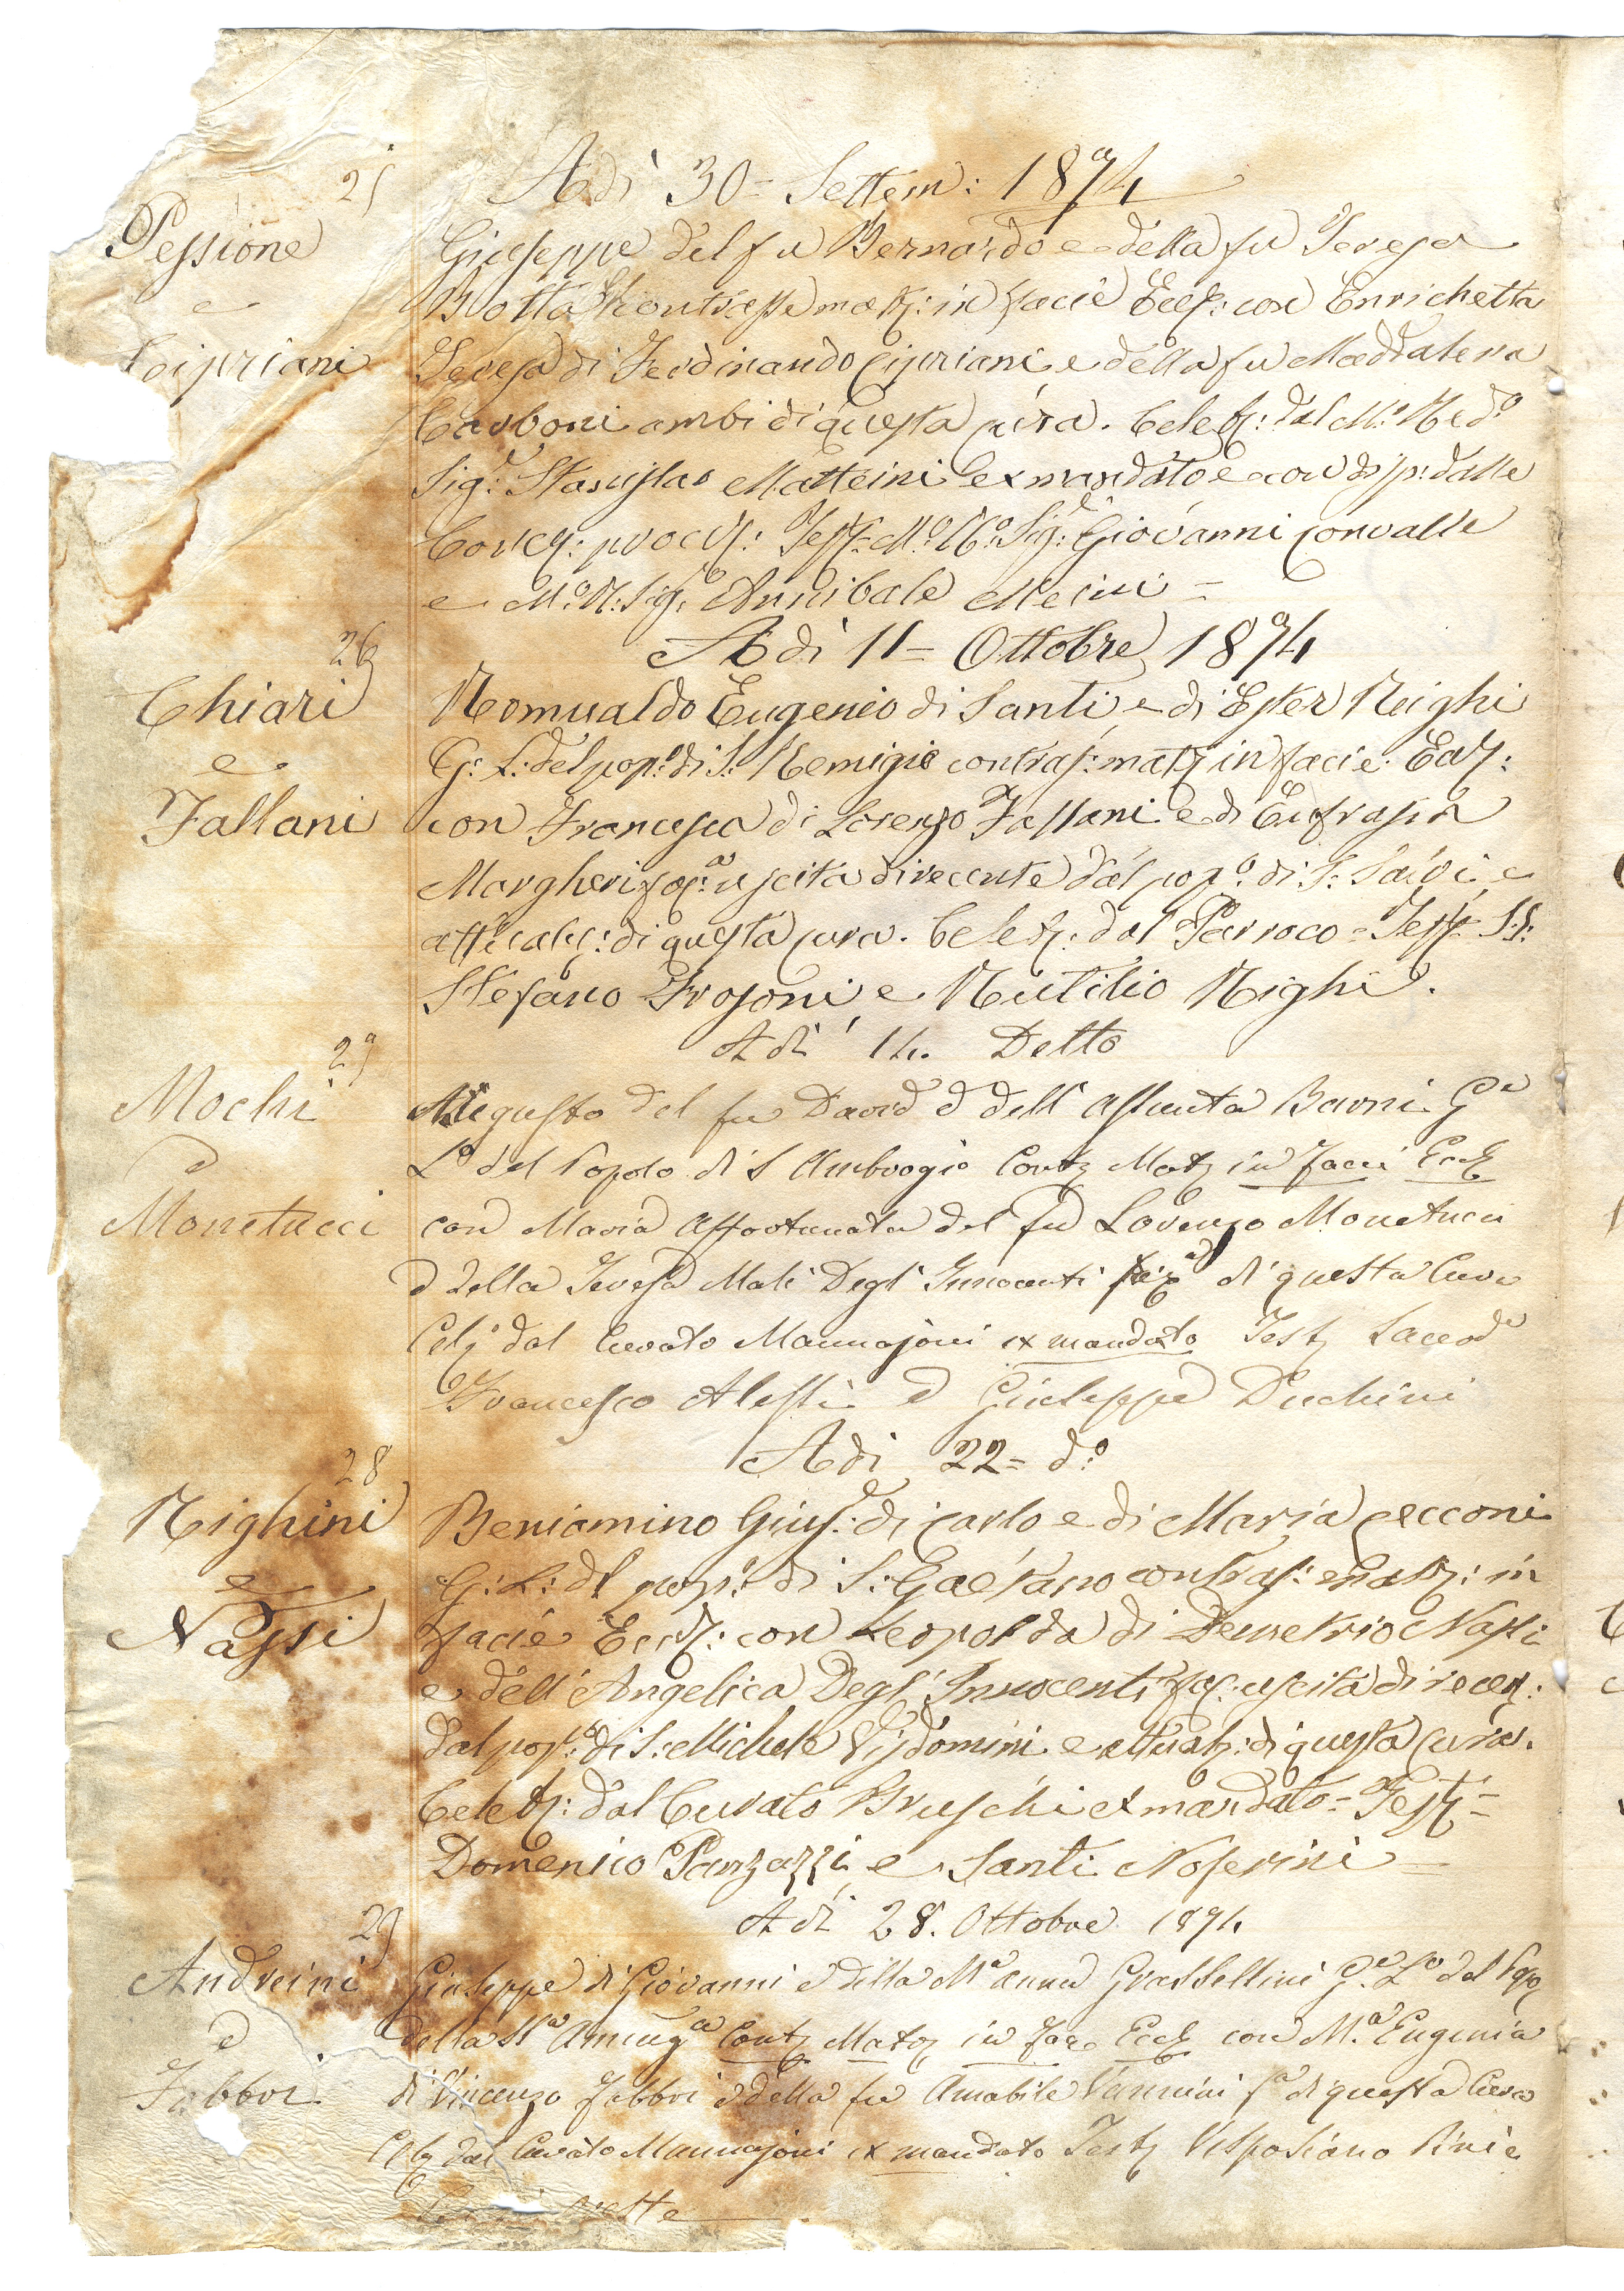 25
Adì 30= Settem: 1874
Pessione
e
Cipriani
Giuseppe del fu Bernardo e della fu Teresa
Botta contrasse matr: in facie Eccl: con Enrichetta
Teresa di Ferdinando Cipriani e della fu Maddalena
Carboni ambi di questa cura. Celebr: dal M: Redo
Sigr: Stanislao Matteini ex mandato e con disp: dalle
Test: Mo: Ro: Sigr: Giovanni Convalle
e Mo: R: Sigr: Annibale Mecini =
26
Adì 11= Ottobre 1874
Chiari
e
Fallani
Romualdo Eugenio di Santi e di Ester Righi
G: L: del popo: di S: Remigio contras: matr in facie Eccl:
con Francesca di Lorenzo Fallani e di Eufrasia
Margheri uscita di recente dal popo: di S: Salvi e
attualm: di questa cura. Celebr: dal Parroco = Test S.S:
Stefano Frosoni e Rutilio Righi.
27
Adì 14. Detto
Mochi
e
Monetucci
Augusto del fu David e dell' Assunta Barni Ge
Lo del Popolo di S Ambrogio Contr Matr in facci Eccl
con Maria Affortunata del fu Lorenzo Monetucci
e della Teresa Mali Degl' Innocenti di questa Cura
Celr dal Curato Mannajoni ex mandato Testj Sacerde
Francesco Alessi e Giuseppe Duchini
28
Adì 22= do:
Righini
e
Nassi
Beniamino Gius: di Carlo e di Maria Cecconi
G: L: del popo: di S: Gaetano contras: matr: in
facie Eccl: con Leopolda di Demetrio Nassi
e dell' Angelica Degl' Innocenti uscita di recen:
dal popo: di S: Michele Visdomini e attualm: di questa cura.
Celebr: dal Curato Bruschi ex mandato = Testj =
Domenico Panzazzi e Santi Noferini =
29
Adì 28. Ottobre 1874
Andreini
e
Fabbri
Giuseppe di Giovanni e della Ma Anna Grassellini Ge Lo del Popo
della SSa Contr Matr in face Eccl con Ma Eugenia
di Vincenzo Fabbri e della fu Amabile Vannini fa di questa Cura
Celr dal Curato Mannajoni ex mandato Testj Vespasiano Pini e